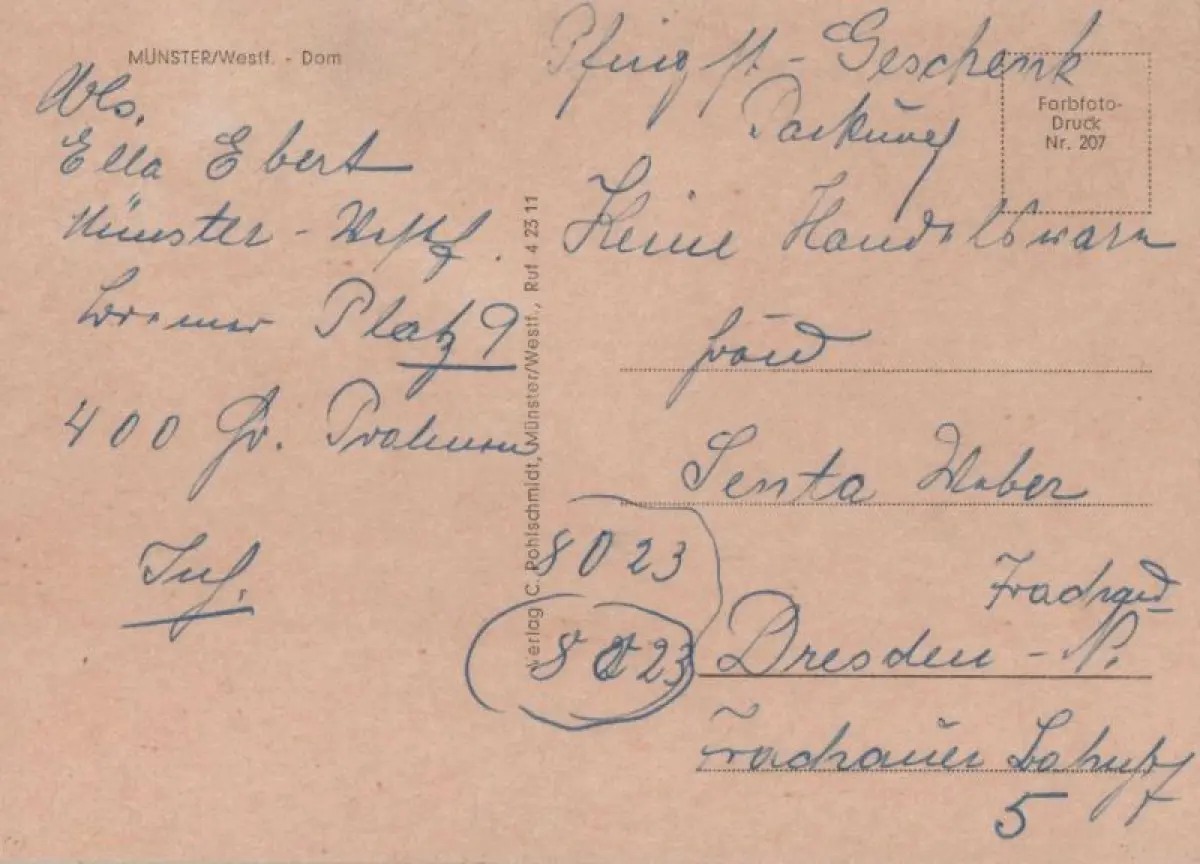 MÜNSTER/Westf. - Dom
Abs.
Ella Ebert
Münster - Westf.
Bremer Platz 9
400 Gr. Pralinen
Inh.
Verlag C. Pohlschmidt, Münster/Westf., Ruf 4 23 11
Pfingst. - Geschenk
Packung
Farbfoto-
Druck
Nr. 207
Keine Handelsware
Senta Weber
8023
8023
Trachau
Dresden - N.
Trachauer Bahnhf
5